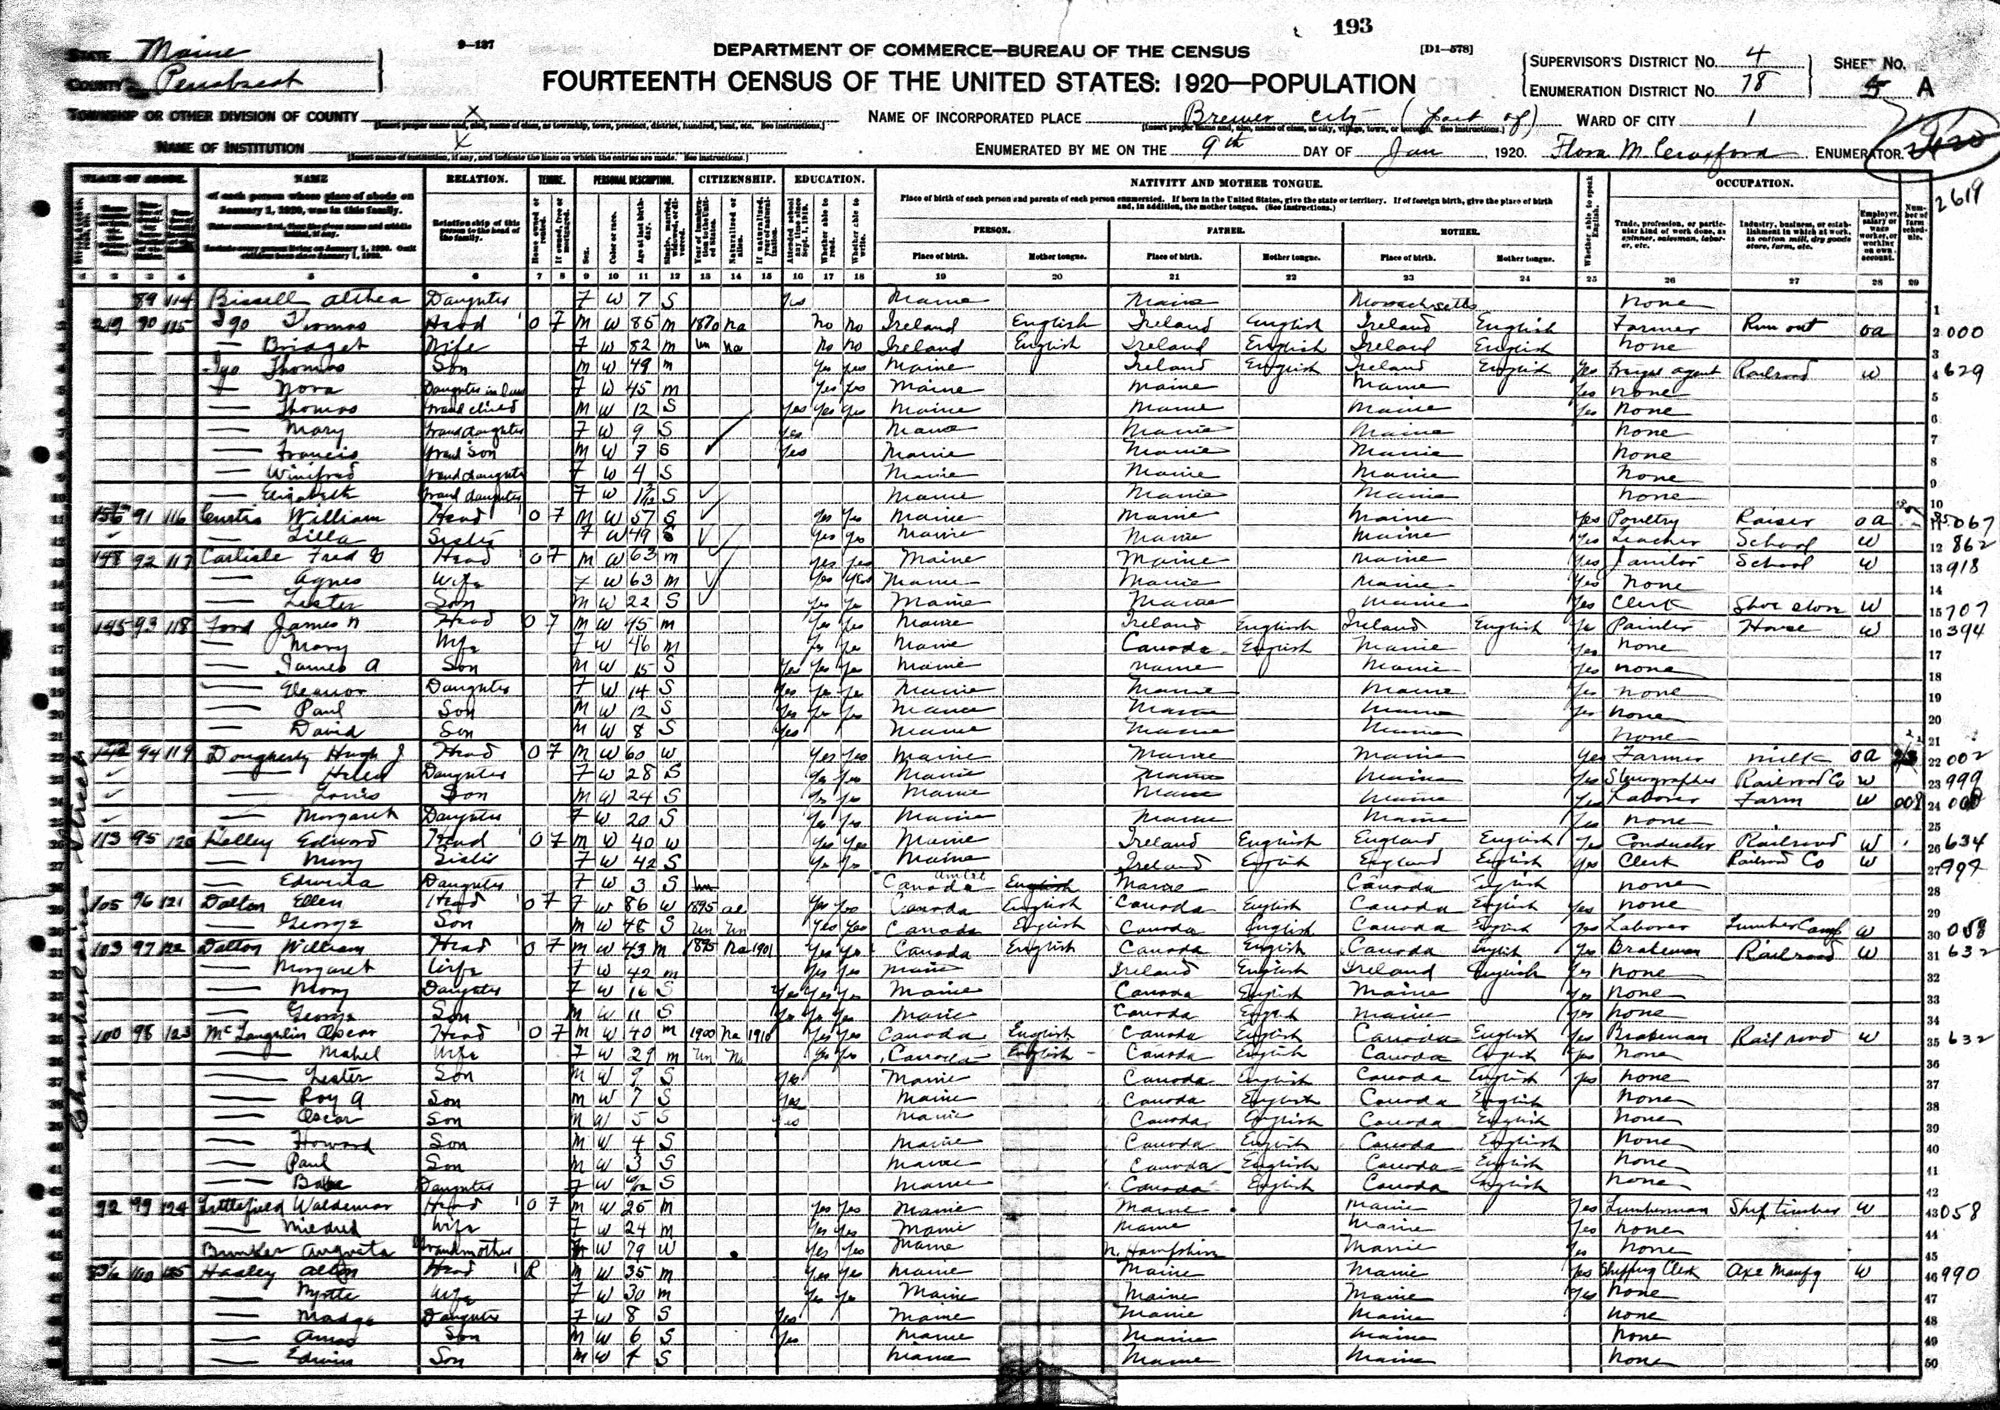 193
9-137
DEPARTMENT OF COMMERCE—BUREAU OF THE CENSUS
[D1-578]
FOURTEENTH CENSUS OF THE UNITED STATES: 1920—POPULATION
STATE Maine
COUNTY Penobscot
TOWNSHIP OR OTHER DIVISION OF COUNTY X
NAME OF INSTITUTION X
NAME OF INCORPORATED PLACE Brewer city (part of)
ENUMERATED BY ME ON THE 9th DAY OF Jan 1920. Flora M. ENUMERATOR.
SUPERVISOR'S DISTRICT No. 4
ENUMERATION DISTRICT No. 78
SHEET No. A
WARD OF CITY 1
2619
PLACE OF ABODE. NAME RELATION. TENURE. PERSONAL DESCRIPTION. CITIZENSHIP. EDUCATION. NATIVITY AND MOTHER TONGUE. OCCUPATION.
of each person whose place of abode on January 1, 1920, was in this family.
Relationship of this person to the head of the family.
Place of birth of each person and parents of each person enumerated. If born in the United States, give the state or territory. If of foreign birth, give the place of birth and, in addition, the mother tongue. (See instructions.)
PERSON. FATHER. MOTHER.
Place of birth. Mother tongue. Place of birth. Mother tongue. Place of birth. Mother tongue.
1 2 3 4 5 6 7 8 9 10 11 12 13 14 15 16 17 18 19 20 21 22 23 24 25 26 27 28 29
89 114 Bissell Althea Daughter F W 7 S Yes Maine Maine Massachsetts none 1
219 90 115 Igo Thomas Head O F M W 85 m 1870 na no no Ireland English Ireland English Ireland English Farmer Run out oa 2 000
— Bridget Wife F W 82 m un na no no Ireland English Ireland English Ireland English none 3
Igo Thomas Son M W 49 m Yes yes Maine Ireland English Ireland English Yes Freight agent Railroad W 4 629
— Nora Daughter in law F W 45 m Yes Yes Maine Maine Maine Yes none 5
— Thomas M W 12 S Yes Yes Yes Maine Maine Maine Yes none 6
— Mary Grand daughter F W 9 S Yes Maine Maine Maine none 7
— Francis Grand Son M W 7 S Yes Maine Maine Maine none 8
— Winifred Grand daughter F W 4 S Maine Maine Maine none 9
— Elizabeth Grand daughter F W S Maine Maine Maine none 10
91 116 Curtis William Head O F M W 57 S Yes Yes Maine Maine Maine Yes Poultry Raiser oa 11 067
— Lilla Sister F W 49 S Yes Yes Maine Maine Maine Yes Teacher School W 12 862
148 92 117 Carlisle Fred Head O F M W 63 m yes yes Maine Maine maine Yes Janitor School W 13 918
— Agnes Wife F W 63 m Yes Yes Maine Maine Maine Yes none 14
— Lester Son M W 22 S Yes Yes Maine Maine Maine Yes Clerk Shoe store W 15 707
145 93 118 Ford James H Head O F M W 45 m Yes Yes Maine Ireland English Ireland English Yes Painter House W 16 394
— Mary Wife F W 46 m Yes Yes Maine Canada English Maine Yes none 17
— James A Son M W 15 S Yes Yes Yes Maine Maine Maine Yes none 18
— Eleanor Daughter F W 14 S Yes Yes Yes Maine Maine Maine Yes none 19
— Paul Son M W 12 S Yes Yes Yes Maine Maine Maine Yes none 20
— David Son M W 8 S Yes Maine Maine Maine none 21
142 94 119 Dougherty Hugh J Head O F M W 60 W Yes Yes Maine Maine Maine Yes Farmer milk oa 22 002
— Helen Daughter F W 28 S Yes Yes Maine Maine Maine Yes Stenographer Railroad Co W 23 999
— Louis Son M W 24 S Yes Yes Maine Maine Maine Yes Laborer Farm W 24
— Margaret Daughter F W 20 S Yes Yes Maine Maine Maine Yes none 25
113 95 120 Kelley Edward Head O F M W 40 W Yes Yes Maine Ireland English England English Yes Conductor Railroad W 26 634
— Mary Sister F W 42 S Yes Yes Maine Ireland English England English Yes Clerk Railroad Co W 27
— Edwina Daughter F W 3 S un Canada English Maine Canada English none 28
105 96 121 Dalton Ellen Head O F F W 86 W 1895 al Yes Yes Canada English Canada English Canada English Yes none 29
— George Son M W 48 S un un Yes Yes Canada English Canada English Canada English Yes Laborer Lumber Camp W 30 058
103 97 122 Dalton William Head O F M W 43 m 1895 Na 1901 Yes Yes Canada English Canada English Canada English Yes Brakeman Railroad W 31 632
— Margaret Wife F W 42 m Yes Yes Maine Ireland English Ireland English Yes none 32
— Mary Daughter F W 16 S Yes Yes Yes Maine Canada English Maine Yes none 33
— George Son M W 11 S Yes Yes Yes Maine Canada English Maine Yes none 34
100 98 123 McLaughlin Oscar Head O F M W 40 m 1900 Na 1910 Yes Yes Canada English Canada English Canada English Yes Brakeman Railroad W 35 632
— Mabel Wife F W 29 m un Na Yes Yes Canada English Canada English Canada English Yes none 36
— Lester Son M W 9 S Yes Maine Canada English Canada English Yes none 37
— Roy A Son M W 7 S Yes Maine Canada English Canada English none 38
— Oscar Son M W 5 S Yes Maine Canada English Canada English none 39
— Howard Son M W 4 S Maine Canada English Canada English none 40
— Paul Son M W 3 S Maine Canada English Canada English none 41
— Daughter F W S Maine Canada English Canada English none 42
92 99 124 Littlefield Waldemar Head O F M W 25 m Yes Yes Maine Maine Maine Yes Lumberman Ship timber W 43 058
— Mildred Wife F W 24 m Yes Yes Maine Maine Maine Yes none 44
Bunker Augusta Grandmother F W 79 W Yes Yes Maine N. Hampshire Maine Yes none 45
100 125 Hadley Head R M W 35 m Yes Yes Maine Maine Maine Yes Shipping Clerk Axe Manfg W 46 990
— Myrtle Wife F W 30 m Yes Yes Maine Maine Maine Yes none 47
— Madge Daughter F W 8 S Yes Maine Maine Maine none 48
— Amos Son M W 6 S Yes Maine Maine Maine none 49
— Edwin Son M W 4 S Maine Maine Maine none 50
Chamberlain Street